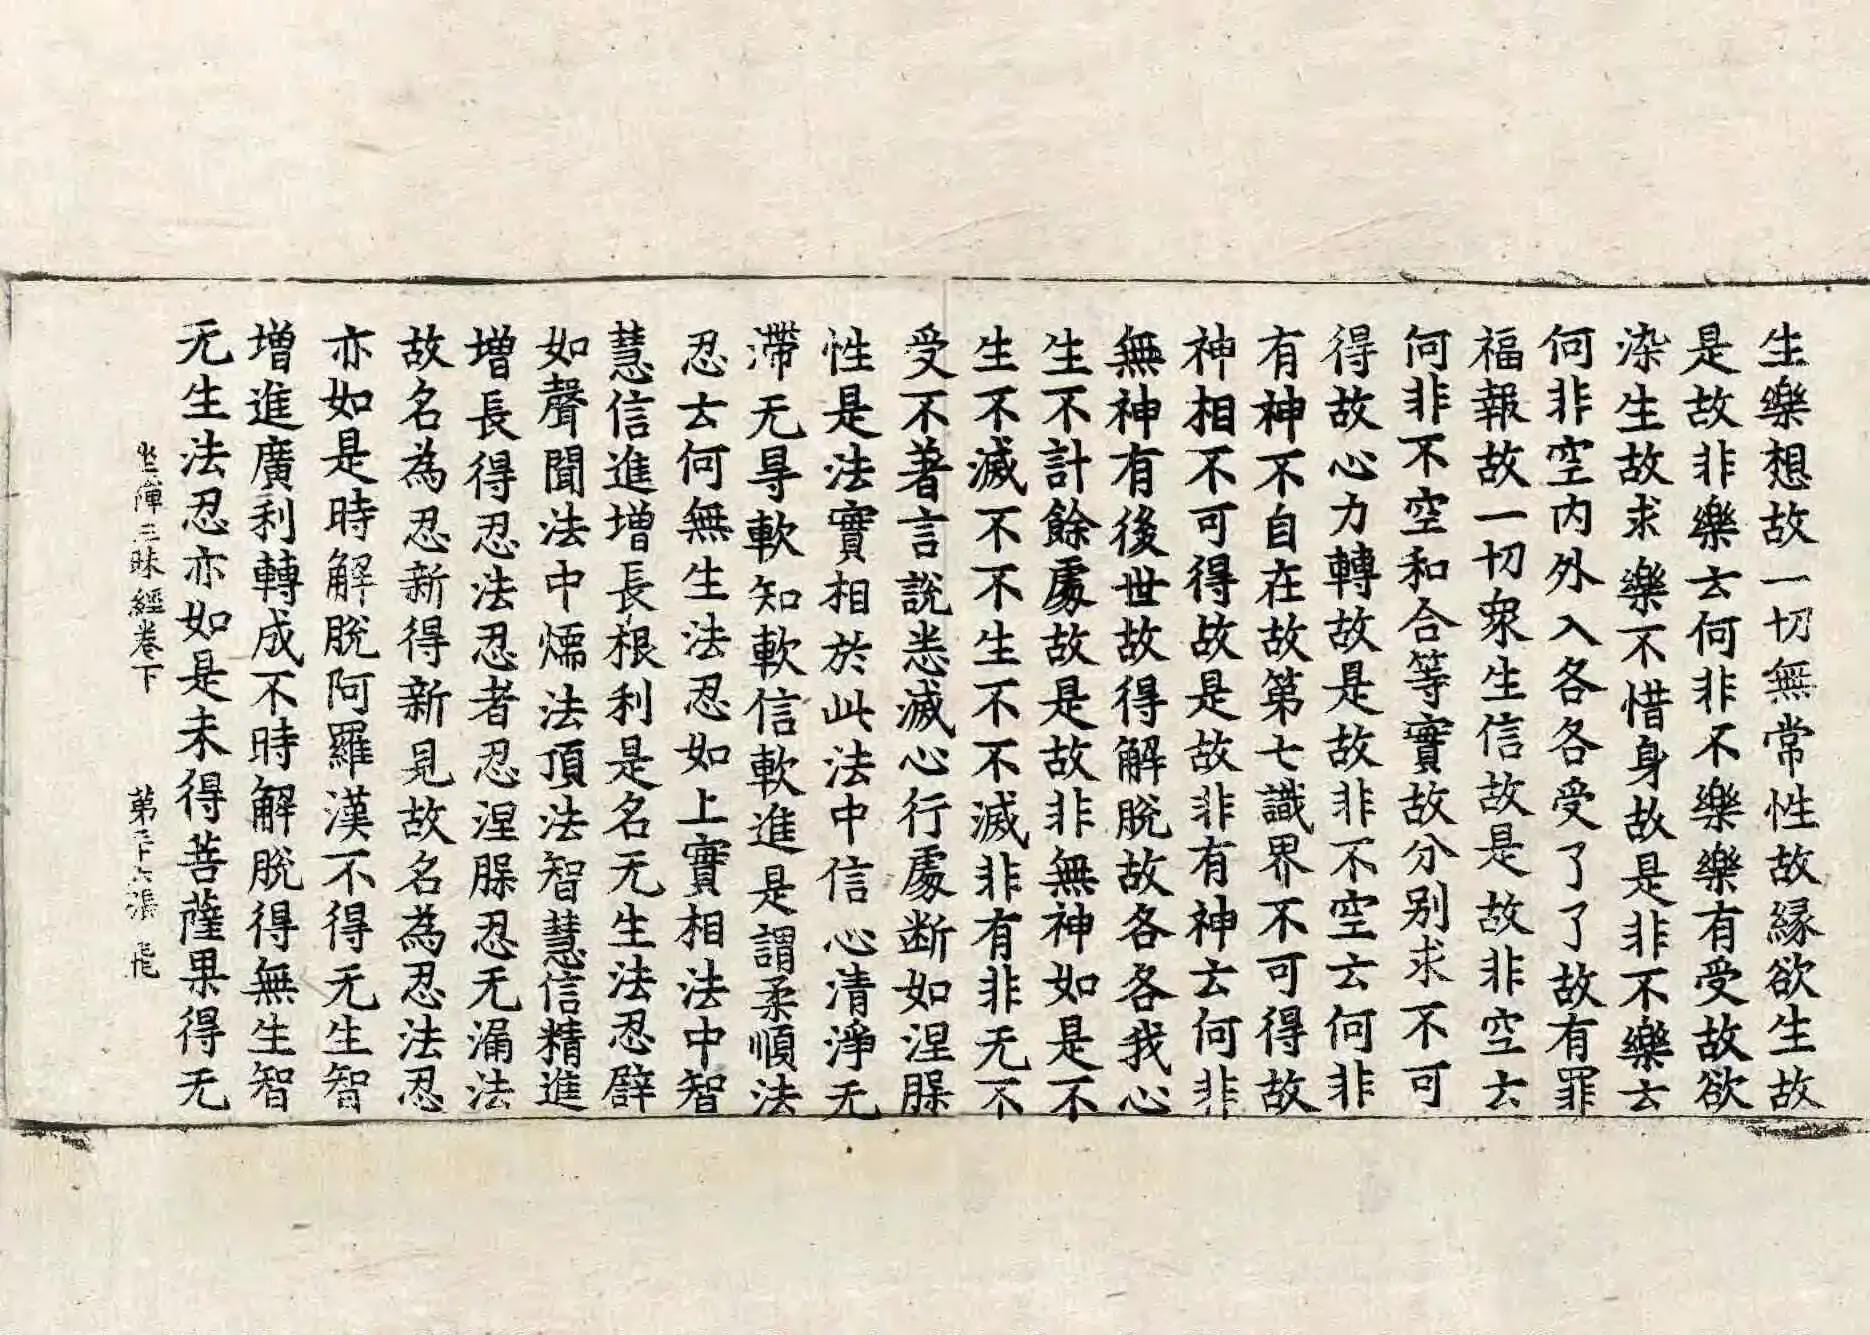 生樂想故一切無常性故緣欲生故
是故非樂云何非不樂樂有受故欲
染生故求樂不惜身故是非不樂云
何非空內外入各各受了了故有罪
福報故一切衆生信故是故非空云
何非不空和合等實故分別求不可
得故心力轉故是故非不空云何非
有神不自在故第七識界不可得故
神相不可得故是故非有神云何非
無神有後世故得解脫故各各我心
生不計餘處故是故非無神如是不
生不滅不不生不不滅非有非无不
受不著言說悉滅心行處断如涅槃
性是法實相於此法中信心清淨无
滯无㝵軟知軟信軟進是謂柔順法
忍云何無生法忍如上實相法中智
慧信進增長根利是名无生法忍譬
如聲聞法中燸法頂法智慧信精進
增長得忍法忍者忍涅槃忍无漏法
故名為忍新得新見故名為忍法忍
亦如是時解脫阿羅漢不得无生智
增進廣利轉成不時解脫得無生智
无生法忍亦如是未得菩薩果得无
坐禪三昧經卷下 第三十六張